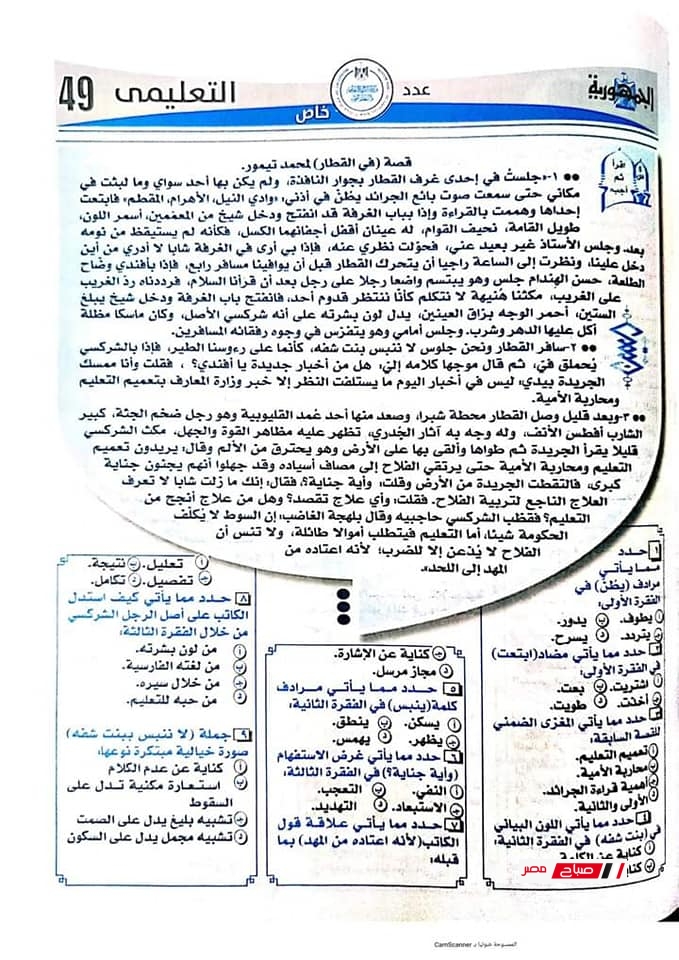 الجمهورية
عدد
خاص
التعليمى
49
اقرأ
ثم
أجب
قصة (في القطار) لمحمد تيمور.
●● ١-«جلستُ في إحدى غرف القطار بجوار النافذة، ولم يكن بها أحد سواي وما لبثت في
مكاني حتى سمعت صوت بائع الجرائد يطُنّ في أذني، «وادي النيل، الأهرام، المقطم» فابتعت
إحداها وهممت بالقراءة وإذا بباب الغرفة قد انفتح ودخل شيخ من المعممين، أسمر اللون،
طويل القامة، نحيف القوام، له عينان أقفل أجفانهما الكسل، فكأنه لم يستيقظ من نومه
بعد وجلس الأستاذ غير بعيد عني، فحوّلت نظري عنه، فإذا بي أرى في الغرفة شابا لا أدري من أين
دخل علينا، ونظرت إلى الساعة راجيا أن يتحرك القطار قبل أن يوافينا مسافر رابع، فإذا بأفندي وضاح
الطلعة، حسن الهندام جلس وهو يبتسم واضعا رجلا على رجل بعد أن قرأنا السلام، فرددناه ردّ الغريب
على الغريب، مكثنا هُنيهة لا نتكلم كأنّا ننتظر قدوم أحد، فانفتح باب الغرفة ودخل شيخ يبلغ
الستين، أحمر الوجه بزاق العينين، يدل لون بشرته على أنه شركسي الأصل، وكان ماسكا مظلة
أكل عليها الدهر وشرب. وجلس أمامي وهو يتفرّس في وجوه رفقائه المسافرين.
●● ٢-سافر القطار ونحن جلوس لا ننبس بنت شفه، كأنما على رءوسنا الطير، فإذا بالشركسي
يُحملق فيّ، ثم قال موجها كلامه إليّ، هل من أخبار جديدة يا أفندي؟ ، فقلت وأنا ممسك
الجريدة بيدي، ليس في أخبار اليوم ما يستلفت النظر إلا خبر وزارة المعارف بتعميم التعليم
ومحاربة الأمية.
●● ٣-وبعد قليل وصل القطار محطة شبرا، وصعد منها أحد عُمد القليوبية وهو رجل ضخم الجثة، كبير
الشارب أفطس الأنف، وله وجه به آثار الجُدري، تظهر عليه مظاهر القوة والجهل. مكث الشركسي
قليلا يقرأ الجريدة ثم طواها وألقى بها على الأرض وهو يحترق من الألم وقال، يريدون تعميم
التعليم ومحاربة الأمية حتى يرتقي الفلاح إلى مصاف أسياده وقد جهلوا أنهم يجنون جناية
كبرى، فالتقطت الجريدة من الأرض وقلت، وأية جناية؟، فقال، إنك ما زلت شابا لا تعرف
العلاج الناجع لتربية الفلاح. فقلت، وأي علاج تقصد؟ وهل من علاج أنجح من
التعليم؟ فقطب الشركسي حاجبيه وقال بلهجة الغاضب، إن السوط لا يُكلّف
الحكومة شيئا، أما التعليم فيتطلب أموالا طائلة، ولا تنس أن
الفلاح لا يُذعن إلا للضرب؛ لأنه اعتاده من
المهد إلى اللحد».
١ حدد مما يأتي
مرادف (يطُنّ) في
الفقرة الأولى:
أ يطوف. ب يدور.
ج يتردد. د يسرح.
حدد مما يأتي مضاد (ابتعت)
في الفقرة الأولى:
اشتريت. ب بعت.
أخذت. د طويت.
حدد مما يأتي المغزى الضمني
للقصة السابقة:
تعميم التعليم.
محاربة الأمية.
أهمية قراءة الجرائد.
الأولى والثانية.
حدد مما يأتي اللون البياني
في (بنت شفه) في الفقرة الثانية:
أ كناية عن الكلمة
ج كناية عن الإشارة.
د مجاز مرسل.
٥ حدد مما يأتي مرادف
كلمة (ينبس) في الفقرة الثانية:
أ يسكن. ب ينطق.
ج يظهر. د يهمس.
٦ حدد مما يأتي غرض الاستفهام
(وأية جناية؟) في الفقرة الثالثة:
أ النفي. ب التعجب.
ج الاستبعاد. د التهديد.
٧ حدد مما يأتي علاقة قول
الكاتب (لأنه اعتاده من المهد) بما
قبله:
أ تعليل. ب نتيجة.
ج تفصيل. د تكامل.
٨ حدد مما يأتي كيف استدل
الكاتب على أصل الرجل الشركسي
من خلال الفقرة الثالثة:
أ من لون بشرته.
ب من لغته الفارسية.
ج من خلال سيره.
د من حبه للتعليم.
٩ جملة (لا ننبس ببنت شفه)
صورة خيالية مبتكرة نوعها:
أ كناية عن عدم الكلام
ب استعارة مكنية تدل على
السقوط
ج تشبيه بليغ يدل على الصمت
د تشبيه مجمل يدل على السكون
صباح مصر
الممسوحة ضوئيا بـ CamScanner